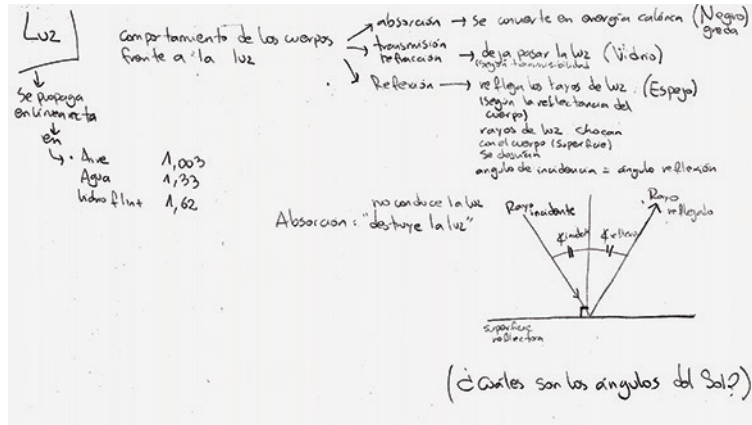 Luz
Se propaga
en línea recta
en
Aire 1,003
Agua 1,33
vidrio flint 1,62
comportamiento de los cuerpos
frente a la luz
absorción → se convierte en energía calórica (Negro)
greda
transmisión
refracción → deja pasar la luz (Vidrio)
(según transmisibilidad
Reflexión → reflejan los rayos de luz. (Espejo)
(según la reflectancia del
cuerpo)
rayos de luz chocan
con el cuerpo (superficie)
se desvían
angulo de incidencia = ángulo reflexión
no conduce la luz
Absorción: "destruye la luz"
Rayo
incidente
Rayo
reflejado
superficie
reflectora
(¿Cuáles son los ángulos del Sol?)